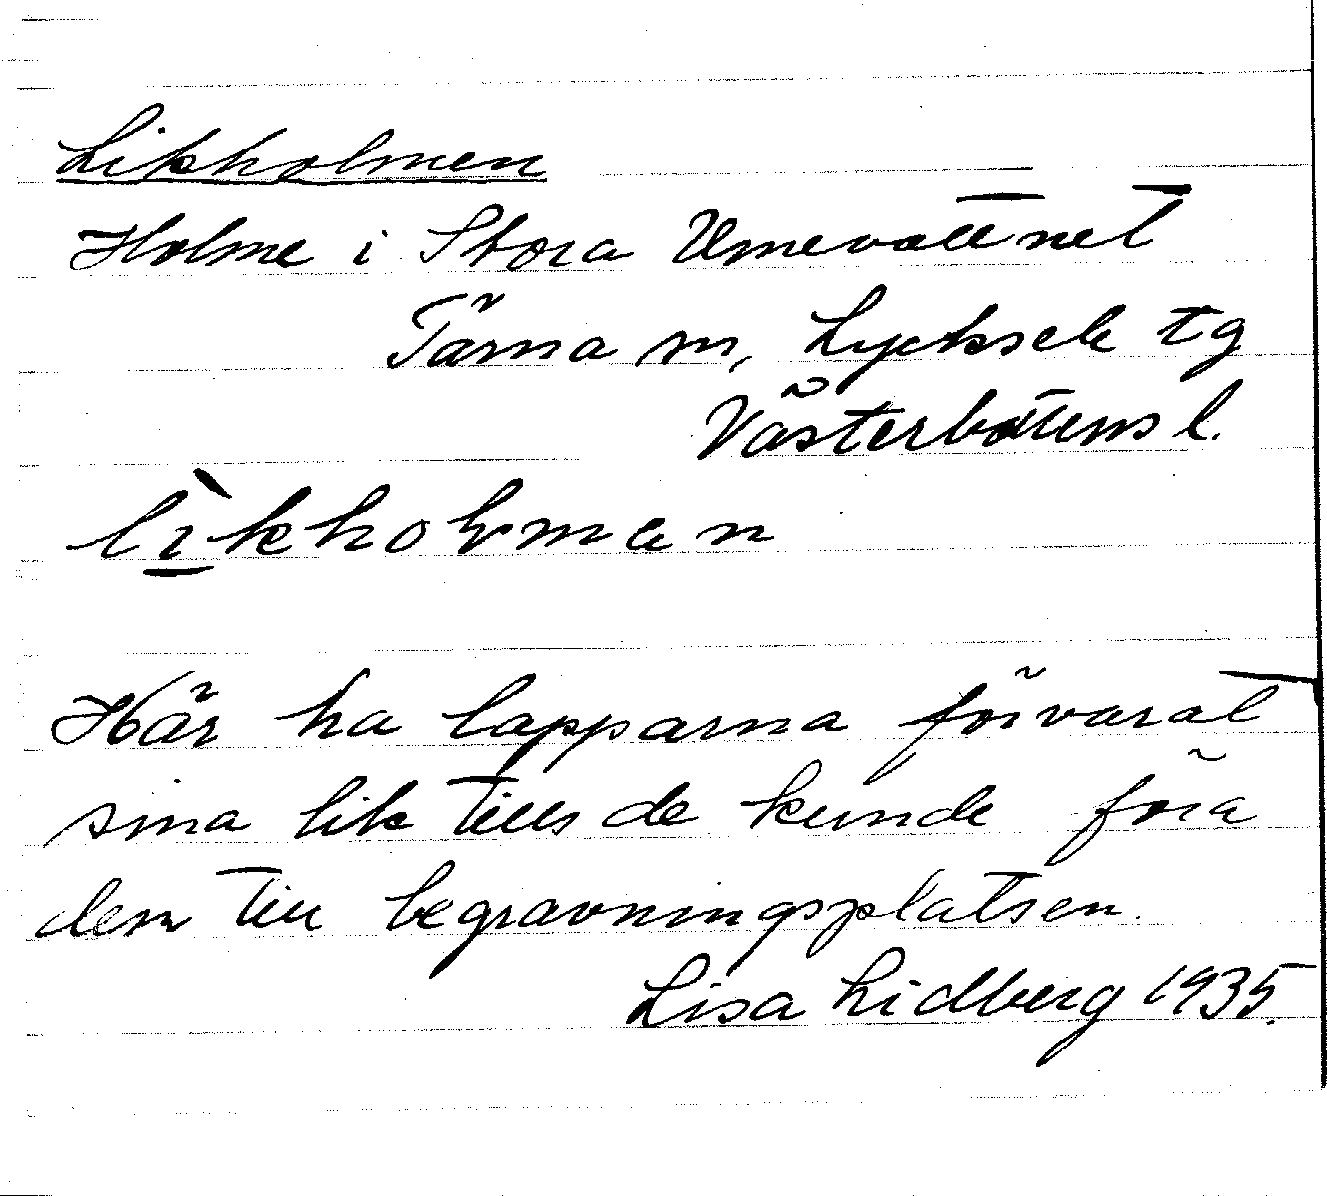 Likholmen
Holme i Stora Umevattnet
Tärna sn, Lycksele tg
Västerbottens l.
lìkholman
Här ha lapparna förvarat
sina lik tills de kunde föra
dem till begravningsplatsen.
Lisa Lidberg 1935.